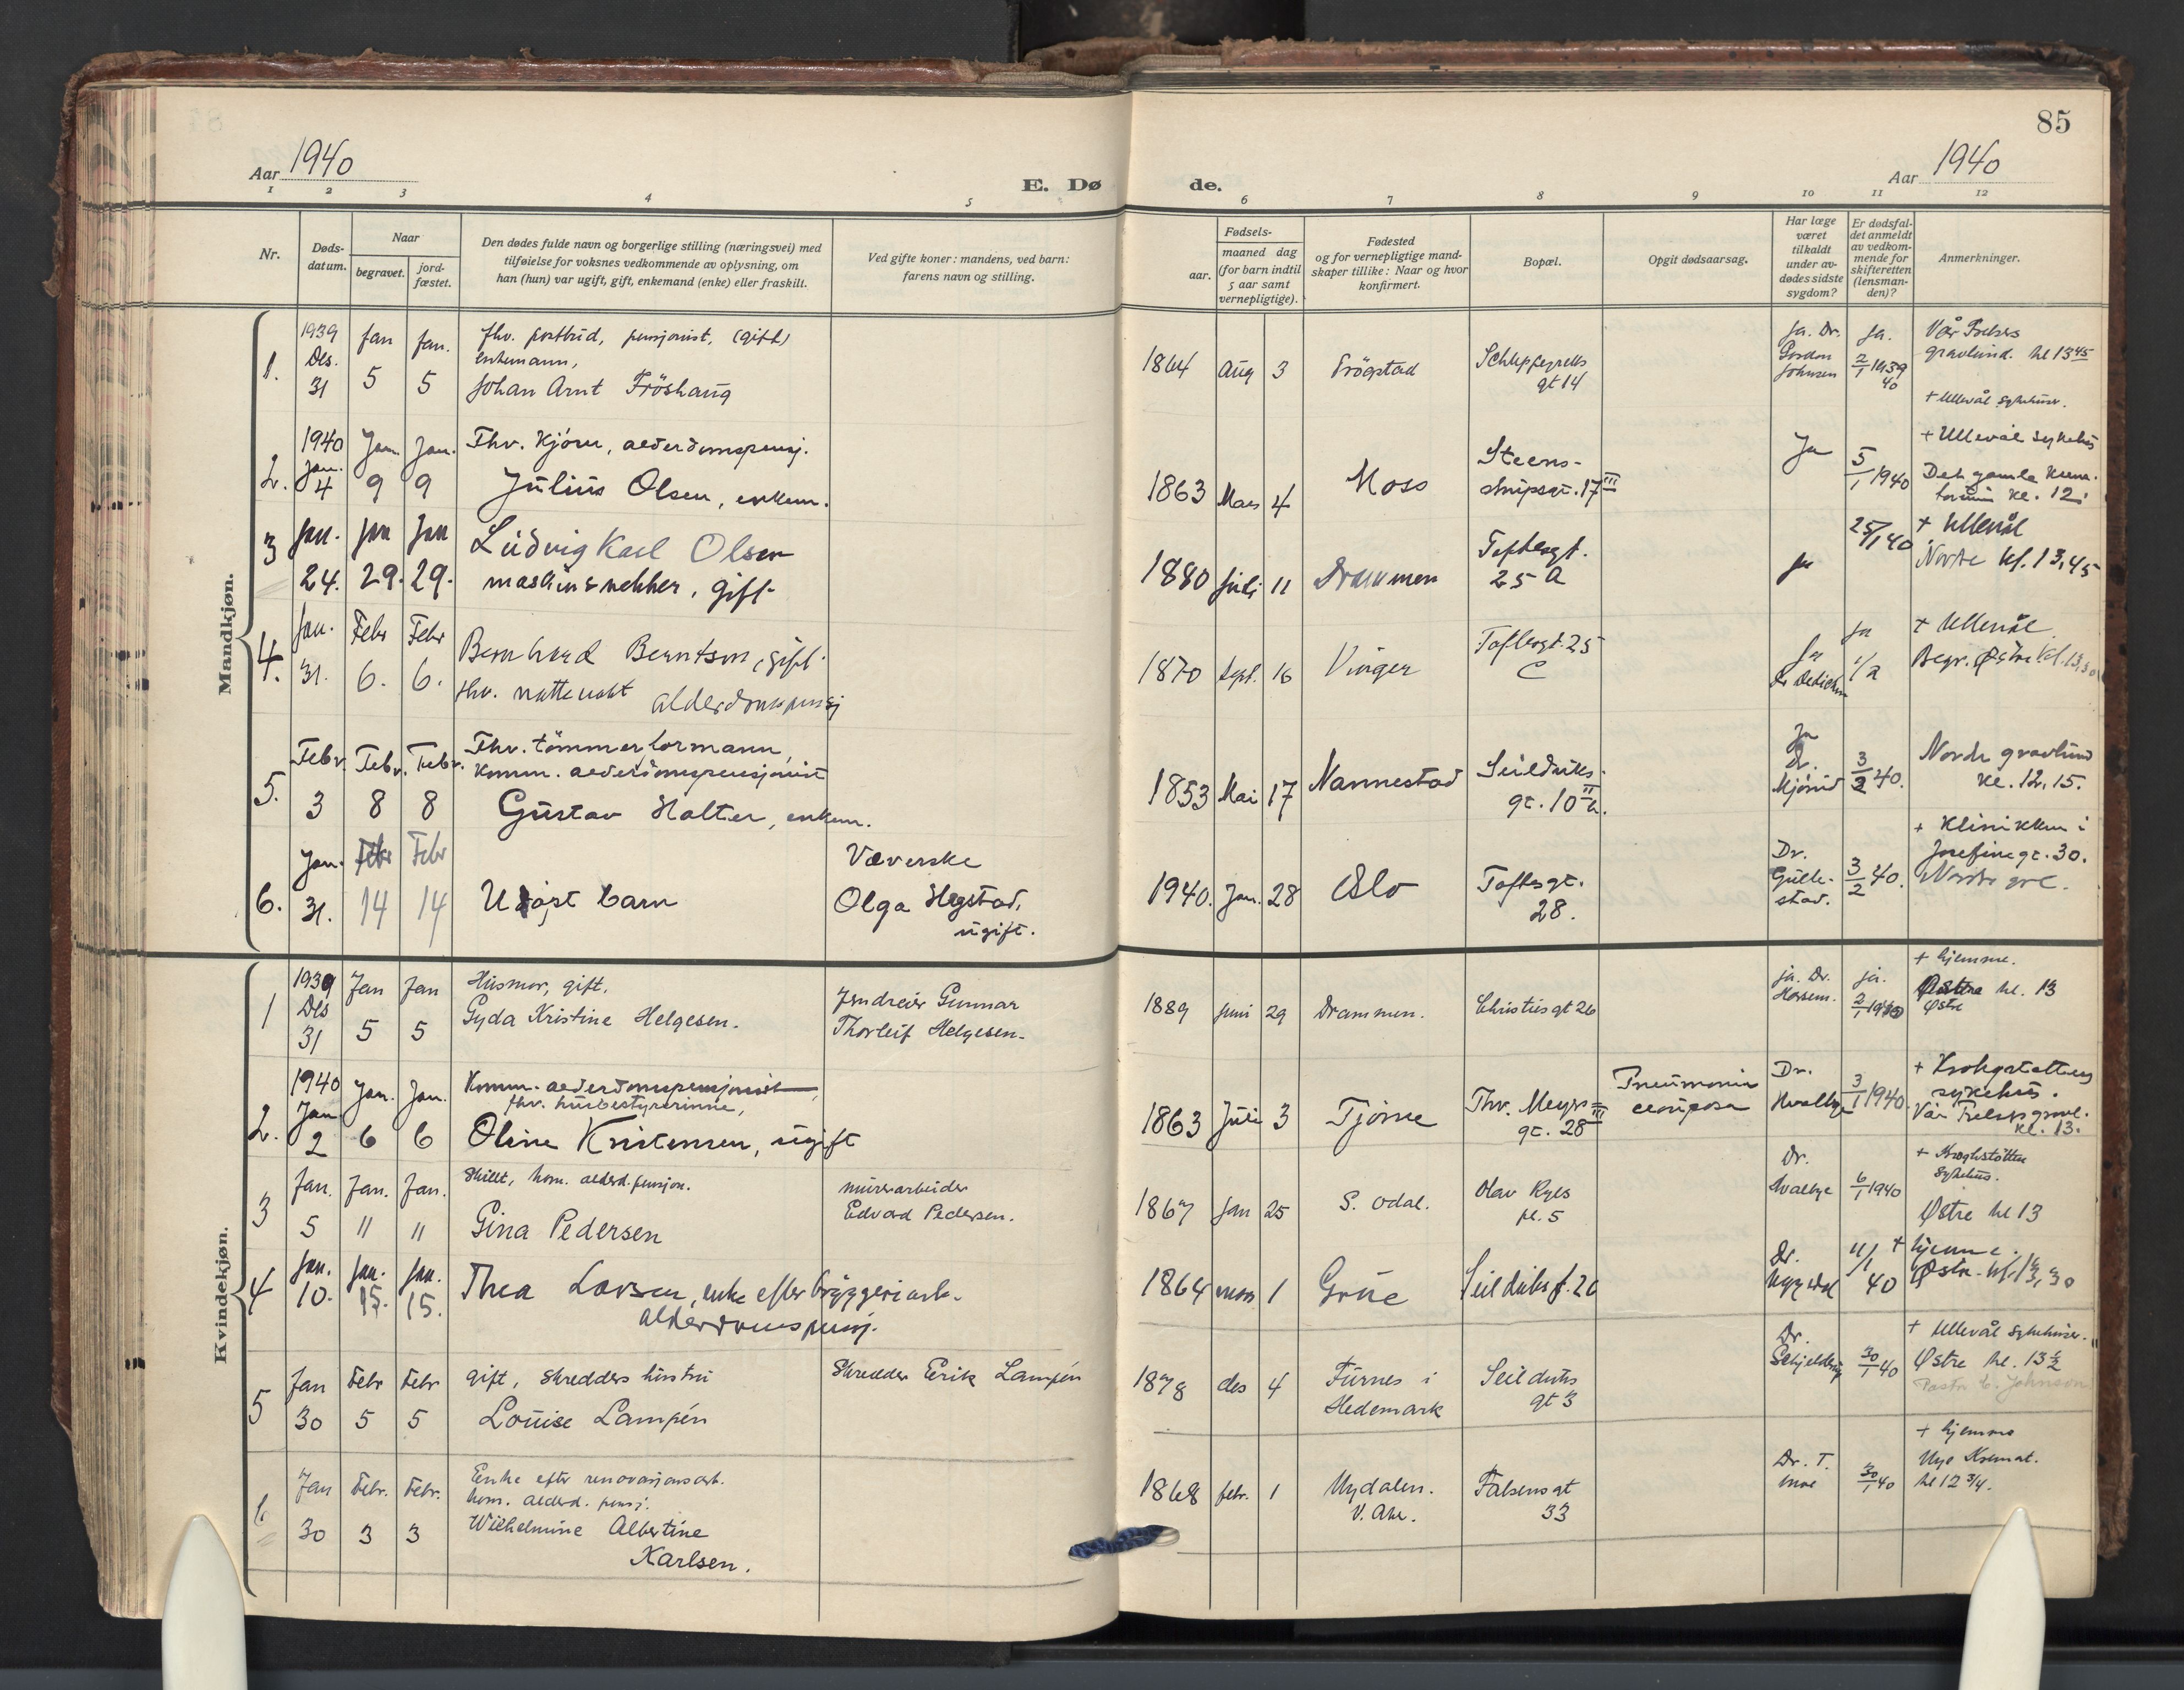 85
Aar 1940
E. Dø
de.
Aar 1940
1 2 3 4 5 6 7 8 9 10 11 12
Nr.
Døds-
datum.
Naar
begravet.
jord-
fæstet.
Den dødes fulde navn og borgerlige stilling (næringsvei) med
tilføielse for voksnes vedkommende av oplysning, om
han (hun) var ugift, gift, enkemand (enke) eller fraskilt.
Ved gifte koner: mandens, ved barn:
farens navn og stilling.
Fødsels-
aar.
maaned dag
(for barn indtil
5 aar samt
vernepligtige).
Fødested
og for vernepligtige mand-
skaper tillike: Naar og hvor
konfirmert.
Bopæl.
Opgit dødsaarsag.
Har læge
været
tilkaldt
under av-
dødes sidste
sygdom?
Er dødsfal-
det anmeldt
av vedkom-
mende for
skifteretten
(lensman-
den)?
Anmerkninger.
Mandkjøn.
1.
1939
Des.
31
Jan
5
Jan.
5
fhv. postbud, pensjonist, (gift)
enkemann,
Johan Arnt Fröshaug
1864 Aug 3
Trögstad
Schuppegrells
gt 14
ja. Dr.
Gordon
Johnsen
ja.
2/1 1939
40
Vår Frelsers
gravlund. kl 13 45
+ Ullevål sykehus.
2.
1940
Jan.
4
Jan.
9
Jan.
9
Fhv. kjörer, alderdomspensj.
Julius Olsen, enkem.
1863 Mars 4
Moss
Steens-
strupsgt. 17 III
Ja
5/1 1940
+ Ullevål sykehus
Det gamle krema-
torium kl. 12.
3
Jan.
24.
Jan
29.
Jan
29.
Ludvig Karl Olsen
maskinsnekker, gift
1880 juli 11
Drammen
Toftesgt.
25 A
ja
25/1 40
+ Ullevål
Nordre kl. 13,45
4.
Jan.
31.
Febr
6.
Febr
6.
Bernhard Berntsen, gift
fhv. nattevakt alderdomspensj
1870 Sept. 16
Vinger
Toftesgt. 25
C
ja
Dr Dedichen
ja
1/2
+ Ullevål
Begr. Østre kl. 13,30
5.
Febr.
3
Febr.
8
Febr.
8
Fhv. tömmerformann,
komm. alderdomspensjonist
Gustav Holter, enkem.
1853 Mai 17
Nannestad
Seilduks-
gt. 10 II
Ja
Dr.
3/2 40.
Nordre gravlund
kl. 12.15.
6.
Jan.
31.
Febr
14
Febr
14
Udöpt barn
Væverske
Olga Hegstad,
ugift.
1940. Jan. 28
Oslo
Toftesgt.
28.
Dr.
Gulle-
stad.
3/2 40.
+ Klinikken i
Josefinegt. 30.
Nordre grl.
Kvindekjøn.
1
1939
Des
31
Jan
5
Jan
5
Husmor, gift.
Gyda Kristine Helgesen.
Jerndreier Gunnar
Thorleif Helgesen.
1889 juni 29
Drammen.
Christiesgt 26
ja. Dr.
ja.
2/1 1940
+ hjemme.
Østre kl. 13
Østre
2.
1940
Jan
2
Jan.
6
Jan.
6
Komm. alderdomspensjonist,
fhv. husbestyrerinne,
Oline Kristensen, ugift
1863 Juli 3
Tjöme
Thv. Meyers
gt. 28 III
Pneumonia
Dr.
Hvalbye
3/1 1940.
+ Krohgstøttens
sykehus.
Vår Frelsers gravl.
kl. 13.
3
Jan.
5
Jan.
11
Jan.
11
Skilt, kom. alderd.pensjon.
Gina Pedersen
murerarbeider
Edvard Pedersen.
1867 jan 25
S. Odal.
Olav Ryes
pl. 5
Dr.
Hvalbye
6/1 1940
+ Kroghstøtten
sykehus.
Østre kl 13
4
Jan.
10.
Jan.
15.
Jan.
15.
Thea Larsen, enke efter bryggeriarb.
alderdomspensj.
1864 mars 1
Grue
Seilduksg. 20
Dr.
11/1
40
+ hjemme.
Østre kl. 13,30
5
Jan
30
Febr
5
Febr
5
gift, skredders hustru
Louise Lampén
Skredder Erik Lampén
1878 des 4
Furnes i
Hedemark
Seilduks
gt 3
Dr.
Schjelderup
30/1 40
+ Ullevål sykehus.
Østre kl. 13 1/2
Pastor C. Johnson
6
Jan
30
Febr.
3
Febr.
3
Enke efter renovasjonsarb.
kom. alderd. pensj.
Wilhelmine Albertine
Karlsen.
1868 febr. 1
Nydalen.
V. Aker.
Falsensgt
33
Dr. T.
Moe
30/1 40
+ hjemme
Nye Kremat.
kl 12 3/4.